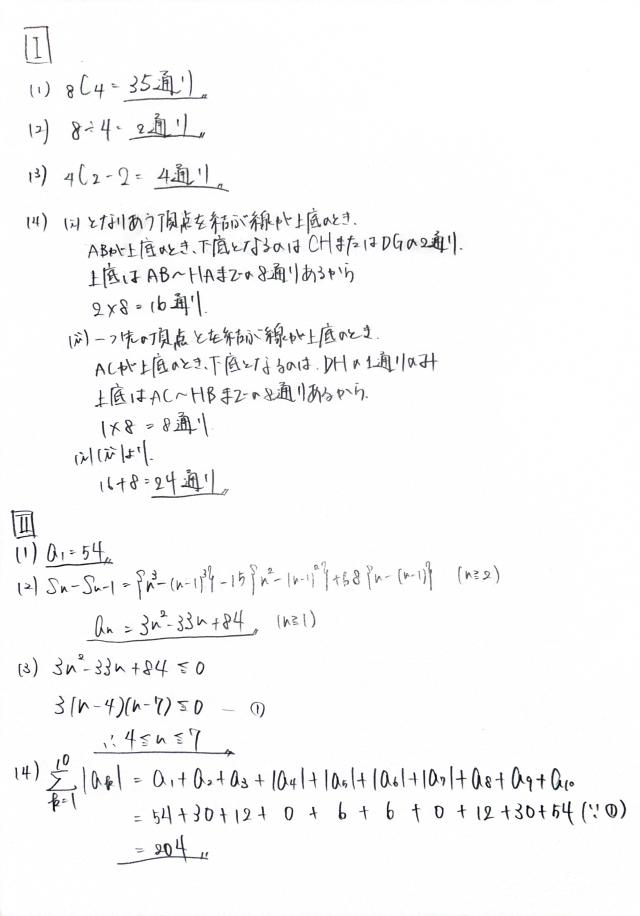 I
(1) 8C4 = 35通り〃
(2) 8÷4 = 2通り〃
(3) 4C2 - 2 = 4通り〃
(4) (i) となりあう頂点を結ぶ線が上底のとき.
ABが上底のとき、下底となるのは CHまたはDGの2通り.
上底は AB～HAまでの8通りあるから
2×8 = 16通り.
(ii) 一つ先の頂点とを結ぶ線が上底のとき.
ACが上底のとき、下底となるのは. DHの1通りのみ
上底はAC～HBまでの8通りあるから.
1×8 = 8通り.
(i)(ii)より.
16+8 = 24通り〃
II
(1) a₁ = 54〃
(2) Sn - Sn-1 = {n³-(n-1)³} - 15{n²-(n-1)²} + 68{n-(n-1)} (n≧2)
an = 3n²-33n+84〃 (n≧1)
(3) 3n²-33n+84 ≦ 0
3(n-4)(n-7) ≦ 0 — ①
∴ 4≦n≦7
(4) Σ[k=1→10] |ak| = a₁+a₂+a₃+|a₄|+|a₅|+|a₆|+|a₇|+a₈+a₉+a₁₀
= 54+30+12+0+6+6+0+12+30+54 (∵①)
= 204〃